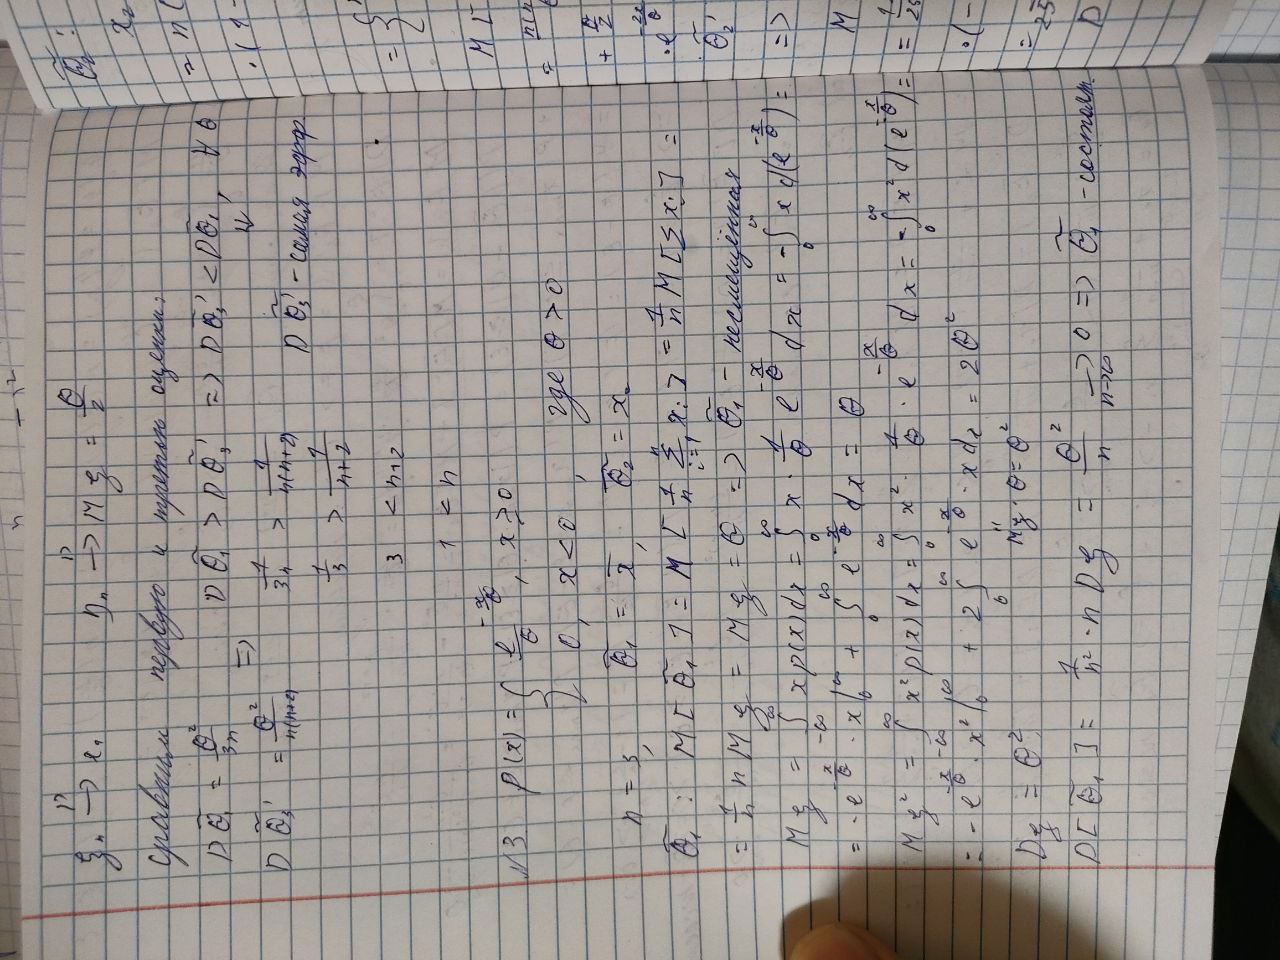 ξₙ →ᵖ x₁   Dₙ →ᵖ Mξ = θ/2
Сравним первую и третью оценки.
Dθ̃₁ = θ²/3n   Dθ̃₁ > Dθ̃₃' => Dθ̃₃' < Dθ̃₁, ∀θ
=>   ⇓
Dθ̃₃' = θ²/n(n+2)   1/3n > 1/n(n+2)   Dθ̃₃' - самая эфф.
1/3 > 1/n+2
3 < n+2
1 < n
№3   p(x) = { e^(-x/θ)/θ, x ≥ 0
0, x < 0,   где θ > 0
n = 3,   θ̃₁ = x̄,   θ̃₂ = x₂
θ̃₁:   M[θ̃₁] = M[1/n Σᵢ₌₁ⁿ xᵢ] = 1/n M[Σxᵢ] =
= 1/n n Mξ = Mξ = θ => θ̃₁ - несмещённая
Mξ = ∫_{-∞}^{∞} x p(x) dx = ∫₀^∞ x · 1/θ e^(-x/θ) dx = -∫₀^∞ x d(e^(-x/θ)) =
= - e^(-x/θ) · x |₀^∞ + ∫₀^∞ e^(-x/θ) dx = θ
Mξ² = ∫_{-∞}^{∞} x² p(x) dx = ∫₀^∞ x² · 1/θ · e^(-x/θ) dx = -∫₀^∞ x² d(e^(-x/θ)) =
= - e^(-x/θ) · x² |₀^∞ + 2∫₀^∞ e^(-x/θ) · x dx = 2θ²
Mξ·θ = θ²
Dξ = θ²
D[θ̃₁] = 1/n² · n Dξ = θ²/n →_{n→∞} 0 => θ̃₁ - состоят.
θ̃₂':
x₂
= n(
· (1 -
= {
M[
=
+ n/2
· e^(-2x/θ)
θ̃₂'
=>
M
= 1/25
· (-
= 25
D